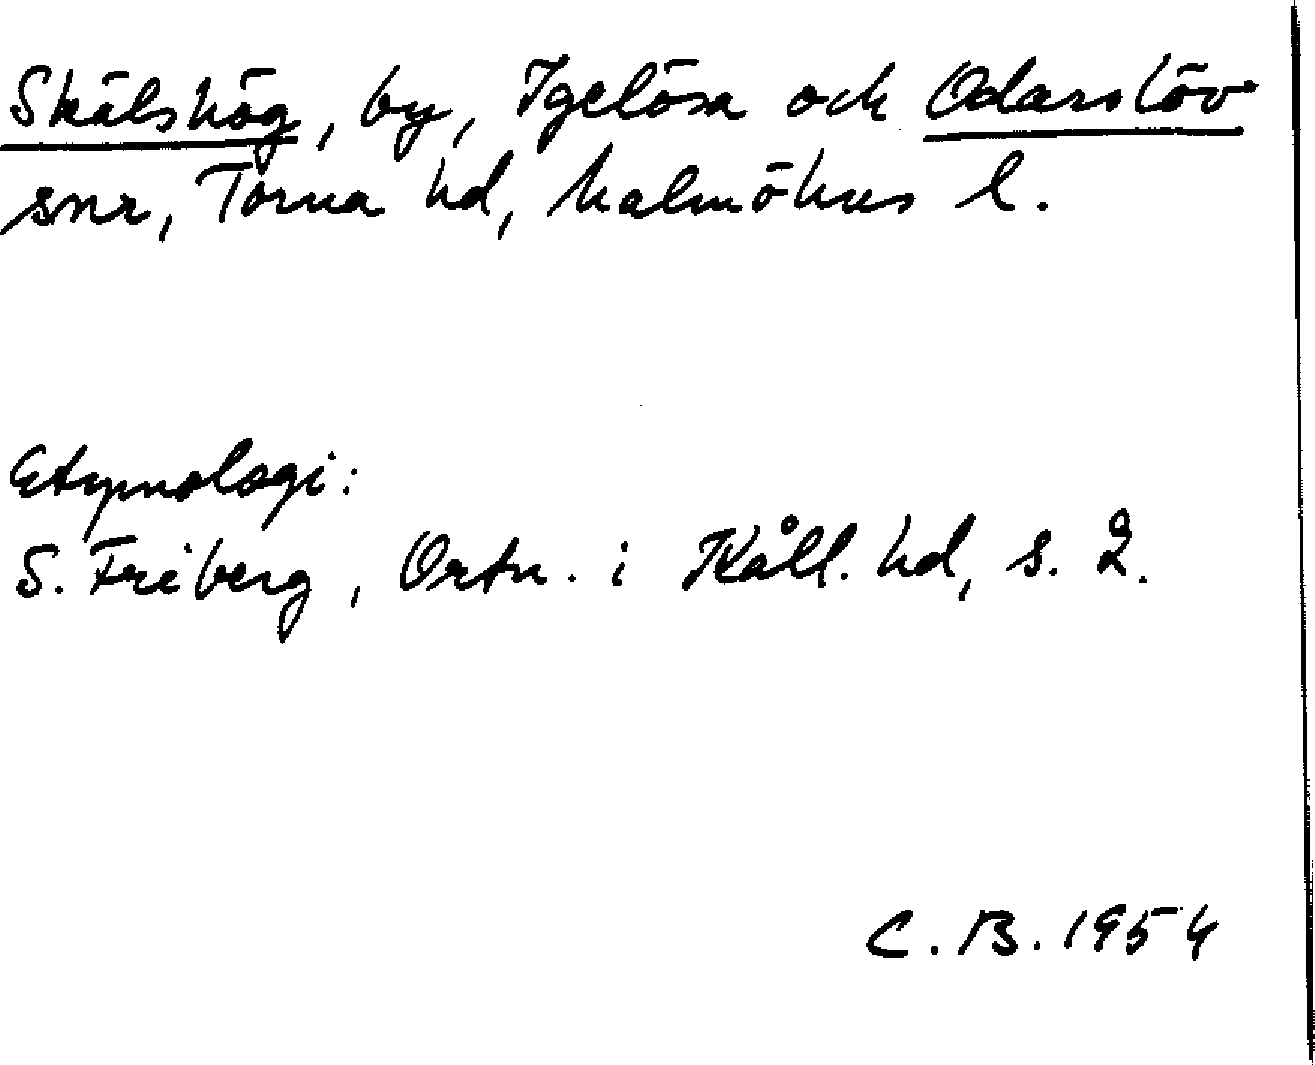 Skälshög, by, Igelösa och Odarslöv
snr, Torna hd, Malmöhus l.
Etymologi:
S. Friberg, Ortn. i Kåll. hd, s. 2.
C. B. 1954